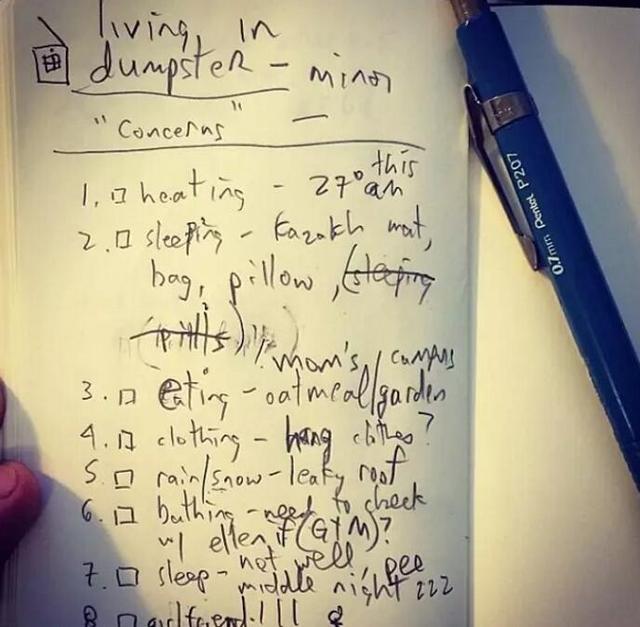 living, in
dumpster - minor
"Concerns" -
1. □ heating - 27° this am
2. □ sleeping - Kazakh mat,
bag, pillow, (sleeping
pills)
mom's / campus
3. □ eating - oatmeal/garden
4. □ clothing - hang clothes?
5. □ rain/snow - leaky roof
6. □ bathing - need to check
w/ ellen if (GYM)?
7. □ sleep - not well, pee
middle night zzz
8 □ girlfriend!!! ♀
0.7mm Pentel P207